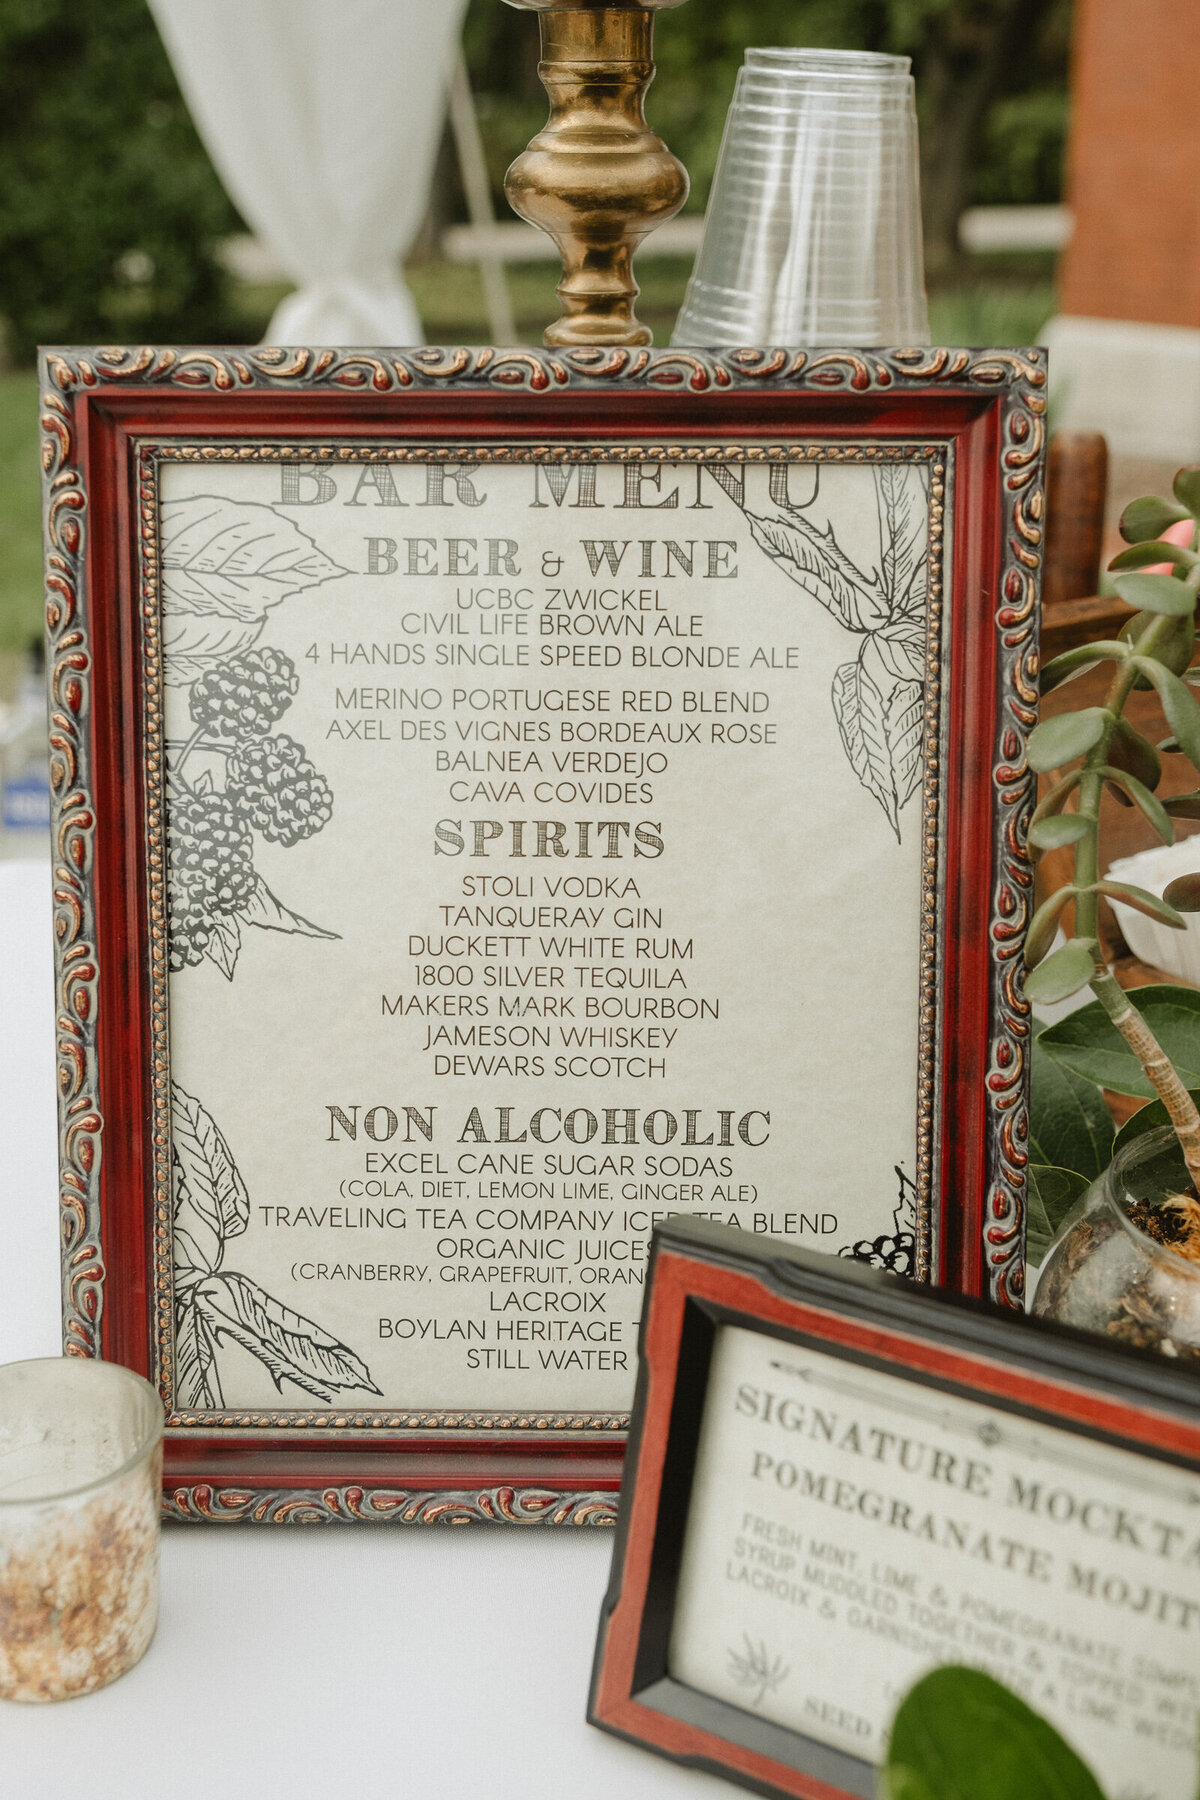 BAR MENU
BEER & WINE
UCBC ZWICKEL
CIVIL LIFE BROWN ALE
4 HANDS SINGLE SPEED BLONDE ALE
MERINO PORTUGESE RED BLEND
AXEL DES VIGNES BORDEAUX ROSE
BALNEA VERDEJO
CAVA COVIDES
SPIRITS
STOLI VODKA
TANQUERAY GIN
DUCKETT WHITE RUM
1800 SILVER TEQUILA
MAKERS MARK BOURBON
JAMESON WHISKEY
DEWARS SCOTCH
NON ALCOHOLIC
EXCEL CANE SUGAR SODAS
(COLA, DIET, LEMON LIME, GINGER ALE)
TRAVELING TEA COMPANY ICED TEA BLEND
ORGANIC JUICES
(CRANBERRY, GRAPEFRUIT,
LACROIX
BOYLAN HERITAGE
STILL WATER
SIGNATURE
POMEGRANATE
FRESH MINT, LIME & POMEGRANATE
SYRUP MUDDLED TOGETHER & TOPPED
LACROIX & GARNISHED WITH A LIME
SEED